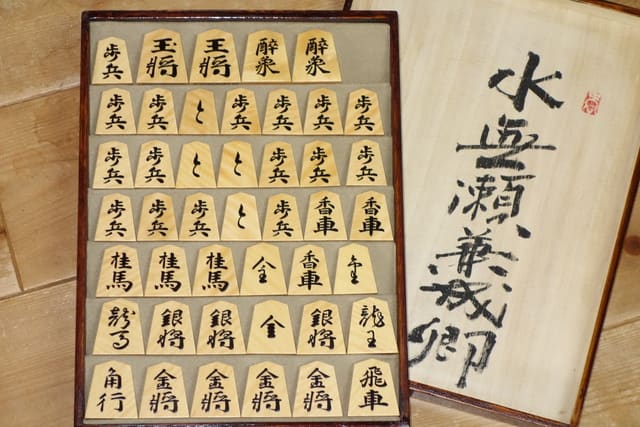 歩兵 玉將 王將 醉象 醉象
歩兵 歩兵 と 歩兵 歩兵 歩兵 歩兵
歩兵 歩兵 と と 歩兵 歩兵 歩兵
歩兵 歩兵 歩兵 と 歩兵 香車 香車
桂馬 桂馬 桂馬 香車
龍馬 銀将 銀将 銀将 龍王
角行 金將 金將 金將 金將 飛車
水無瀬兼成卿